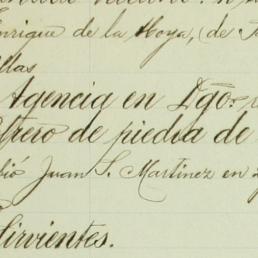 Enrique de la Hoya, (de
llas
Agencia en Dgo.
trero de piedra de
bió Juan S. Martinez en
Sirvientes.